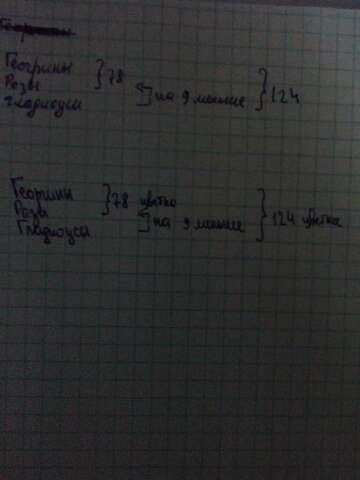 Георгины
Розы } 78
Гладиолусы на 9 меньше } 124
Георгины
Розы } 78 цветка
Гладиолусы на 9 меньше } 124 цветка